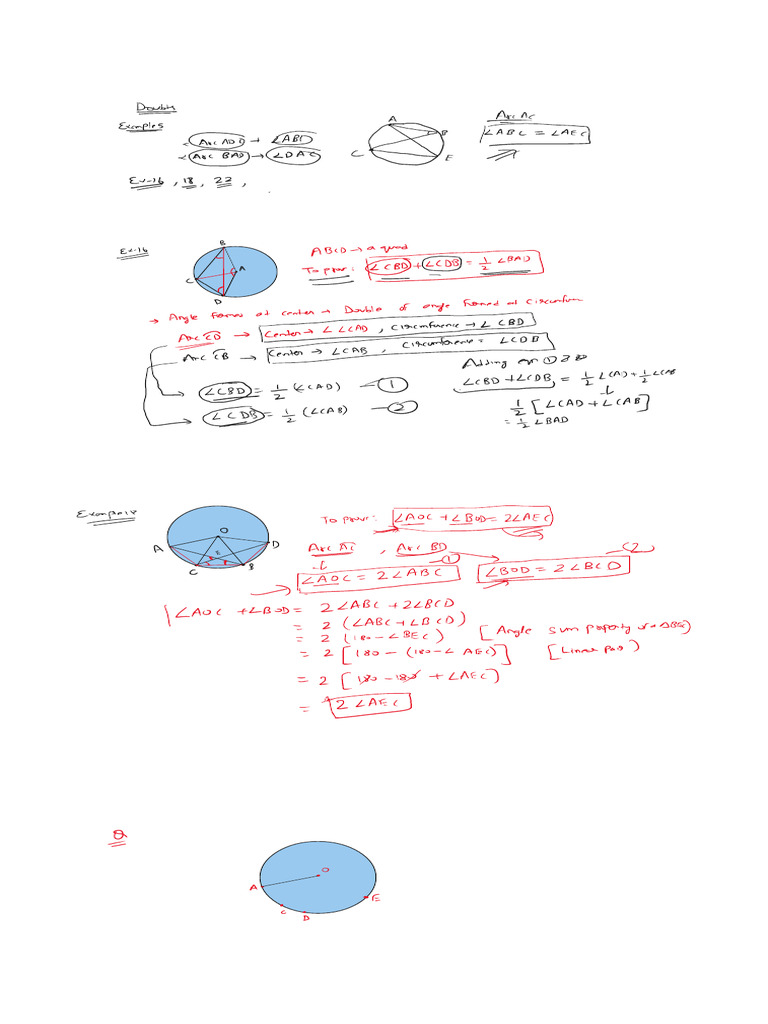 Doubts
Examples
Arc ADC → ∠ABC
Arc BAD → ∠DAC
Ex-16, 18, 22,
A
B
C
E
Arc AC
∠ABC = ∠AEC
Ex-16
B
A
C
D
ABCD → a quad
To prove: ∠CBD + ∠CDB = 1/2 ∠BAD
→ Angle formed at center → Double of angle formed at circum
Arc CD → Center → ∠CAD, Circumference → ∠CBD
Arc CB → Center → ∠CAB, Circumference = ∠CDB
∠CBD = 1/2 (∠CAD) — 1
∠CDB = 1/2 (∠CAB) — 2
Adding eqn ① & ②
∠CBD + ∠CDB = 1/2 ∠CAD + 1/2 ∠CAB
1/2 [∠CAD + ∠CAB]
= 1/2 ∠BAD
Example 18
O
A
D
E
C
B
To prove: ∠AOC + ∠BOD = 2∠AEC
Arc AC, Arc BD
∠AOC = 2∠ABC ①
∠BOD = 2∠BCD (2)
∠AOC + ∠BOD = 2∠ABC + 2∠BCD
= 2 (∠ABC + ∠BCD)
= 2 (180 - ∠BEC) [Angle sum property of a ΔBEC]
= 2 [180 - (180 - ∠AEC)] [Linear pair)
= 2 [180 - 180 + ∠AEC)
= 2∠AEC
Q
O
A
C
D
E